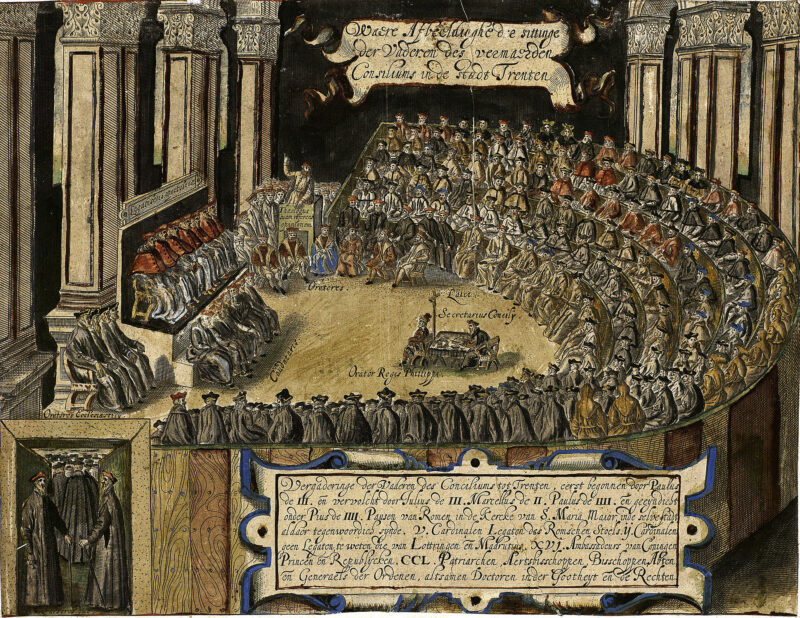 Waere Afbeeldinghe der sittinge
der Vaderen des vermaerden
Consiliums in de stadt Trenten
Oratores
Laici
Secretarius Concilij
Orator Regis Philippi
Oratores Ecclesiastici
Vergaderinge der Vaderen des Conciliums tot Trenten, eerst begonnen door Paulus
de III. en vervolcht door Julius de III. Marcellus de II. Paulus de IIII. en geeyndicht
onder Pius de IIII. Pausen van Romen in de Kercke van S. Maria Maior inde selve stadt
aldaer tegenwoordich synde. V. Cardinalen Legaten des Romschen Stoels. ij. Cardinalen
geen Legaten te weten die van Lottringen en Madrutius. XVI. Ambassadeurs van Coningen
Princen en Republycken. CCL. Patriarchen Aertsbisschoppen, Bisschoppen Abten
en Generaels der Ordenen, altsamen Doctoren in der Gootheyt en de Rechten.